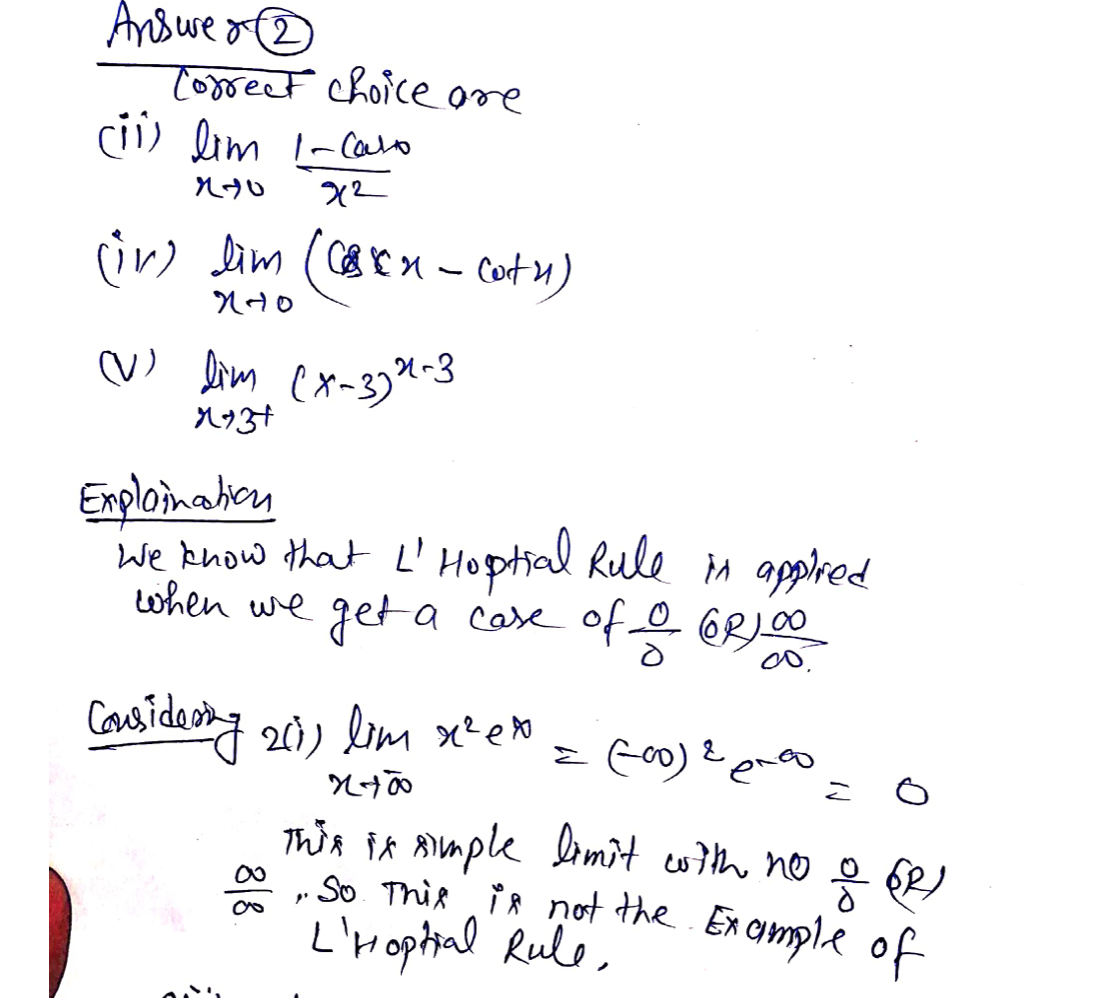 Answer ②
Correct choice are
(ii) lim x→0 1-Cosx / x²
(iv) lim x→0 (Cscx - cotx)
(V) lim x→3+ (x-3)^x-3
Explaination
We know that L' Hoptial Rule is applied
when we get a case of 0/0 (OR) ∞/∞.
Considering 2(i) lim x→-∞ x² e^x = (-∞)² e^-∞ = 0
This is simple limit with no 0/0 (OR)
∞/∞, So This is not the Example of
L'Hoptial Rule.